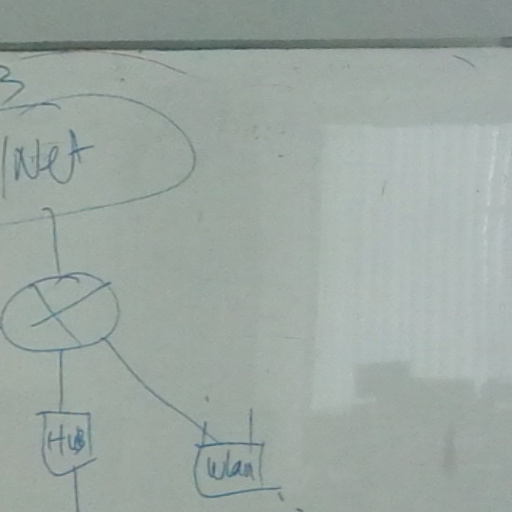 INet
HUB
Wlan